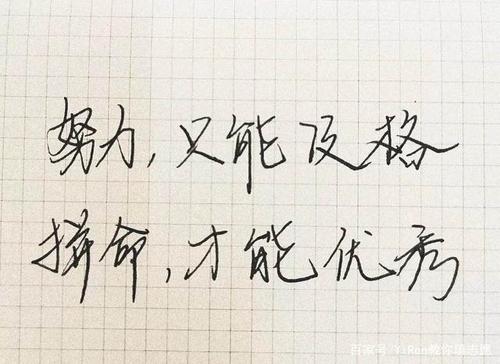 努力,只能及格
拼命,才能优秀
百家号/YiRan教你用志愿